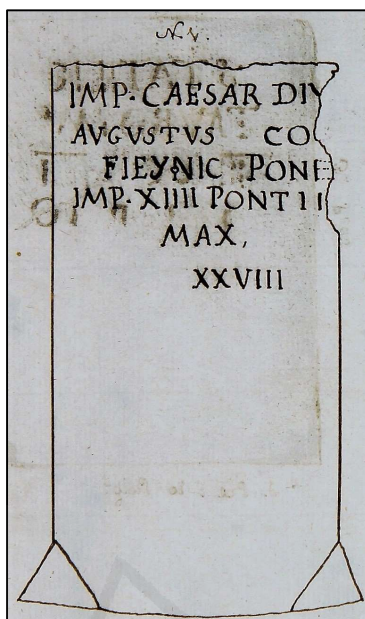 N V.
IMP·CAESAR DIV
AVGVSTVS CO
FIEYNIC PONE
IMP·XIIII PONTII
MAX,
XXVIII